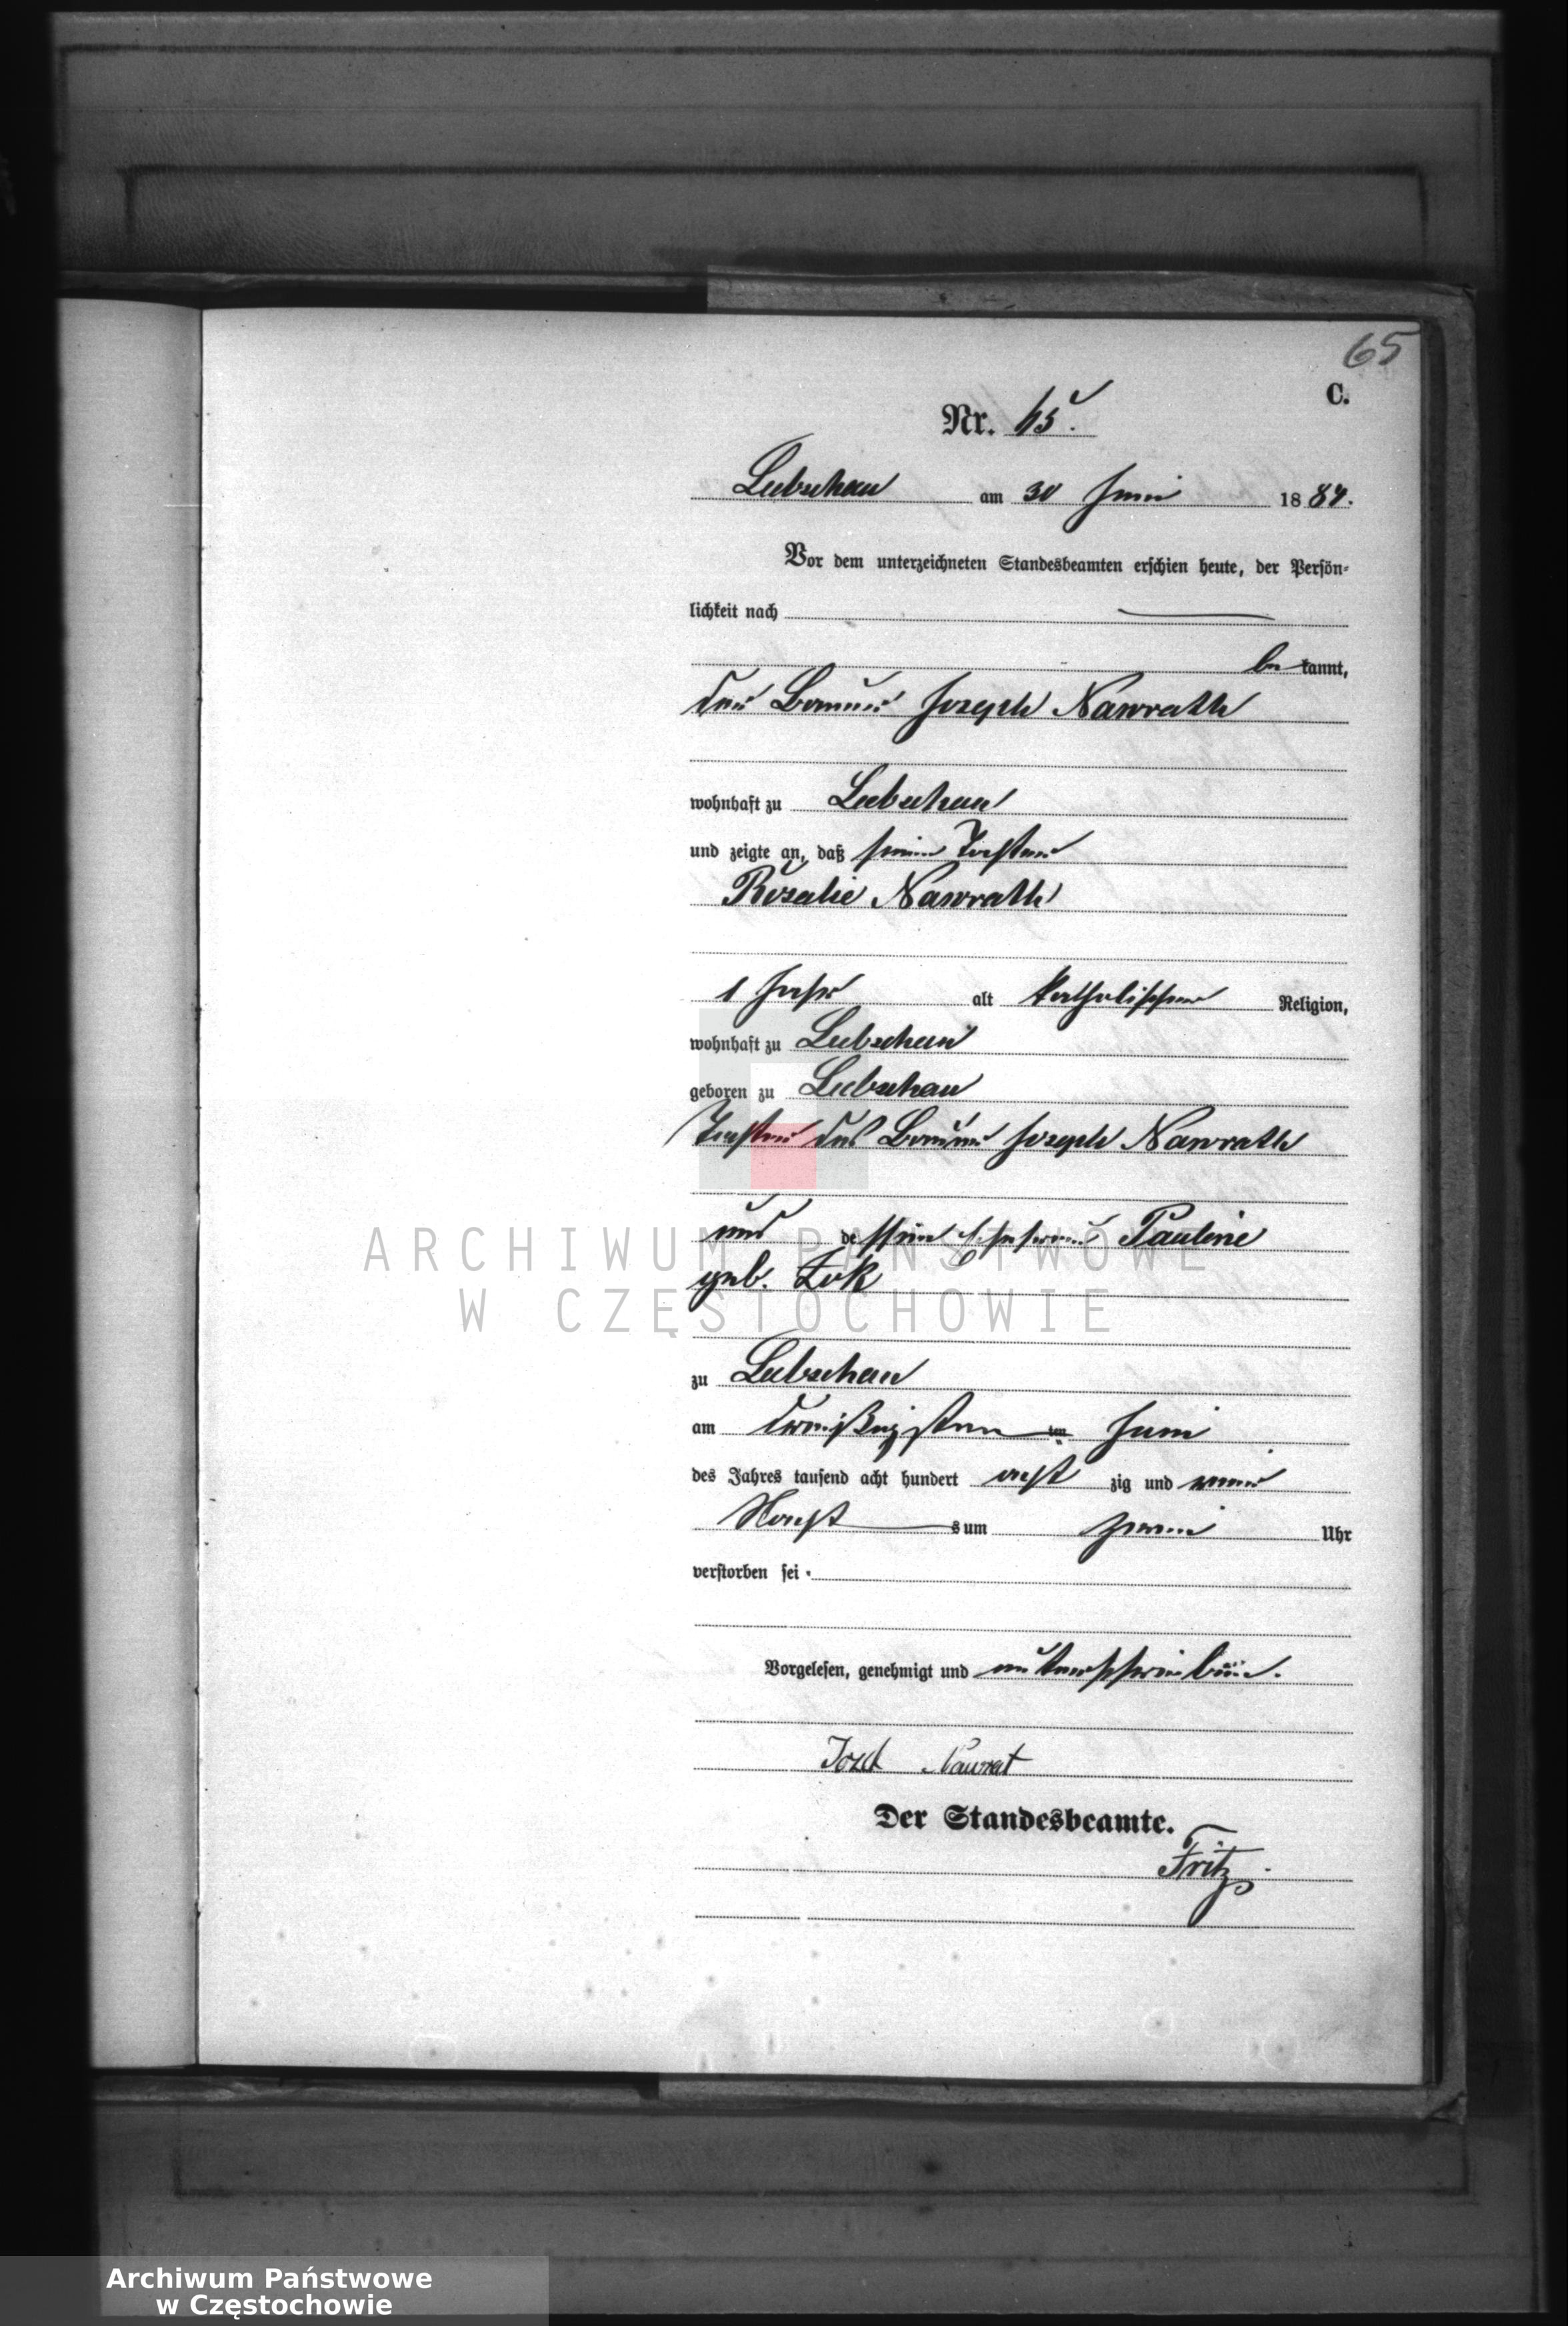 65
C.
Nr. 65.
Lubschau am 30 Juni 1884.
Vor dem unterzeichneten Standesbeamten erschien heute, der Persön-
lichkeit nach
be kannt,
der Bauer Joseph Nawrath
wohnhaft zu Lubschau
und zeigte an, daß seine Tochter
Rosalie Nawrath
1 Jahr alt katholischer Religion,
wohnhaft zu Lubschau
geboren zu Lubschau
Tochter des Bauer Joseph Nawrath
und dessen Ehefrau Pauline
geb. Zok
zu Lubschau
am dreißigsten ten Juni
des Jahres tausend acht hundert acht zig und vier
Nacht s um zwei Uhr
verstorben sei.
Vorgelesen, genehmigt und unterschrieben.
Jozef Nawrat
Der Standesbeamte.
Fritz
ARCHIWUM PAŃSTWOWE
W CZĘSTOCHOWIE
Archiwum Państwowe
w Częstochowie